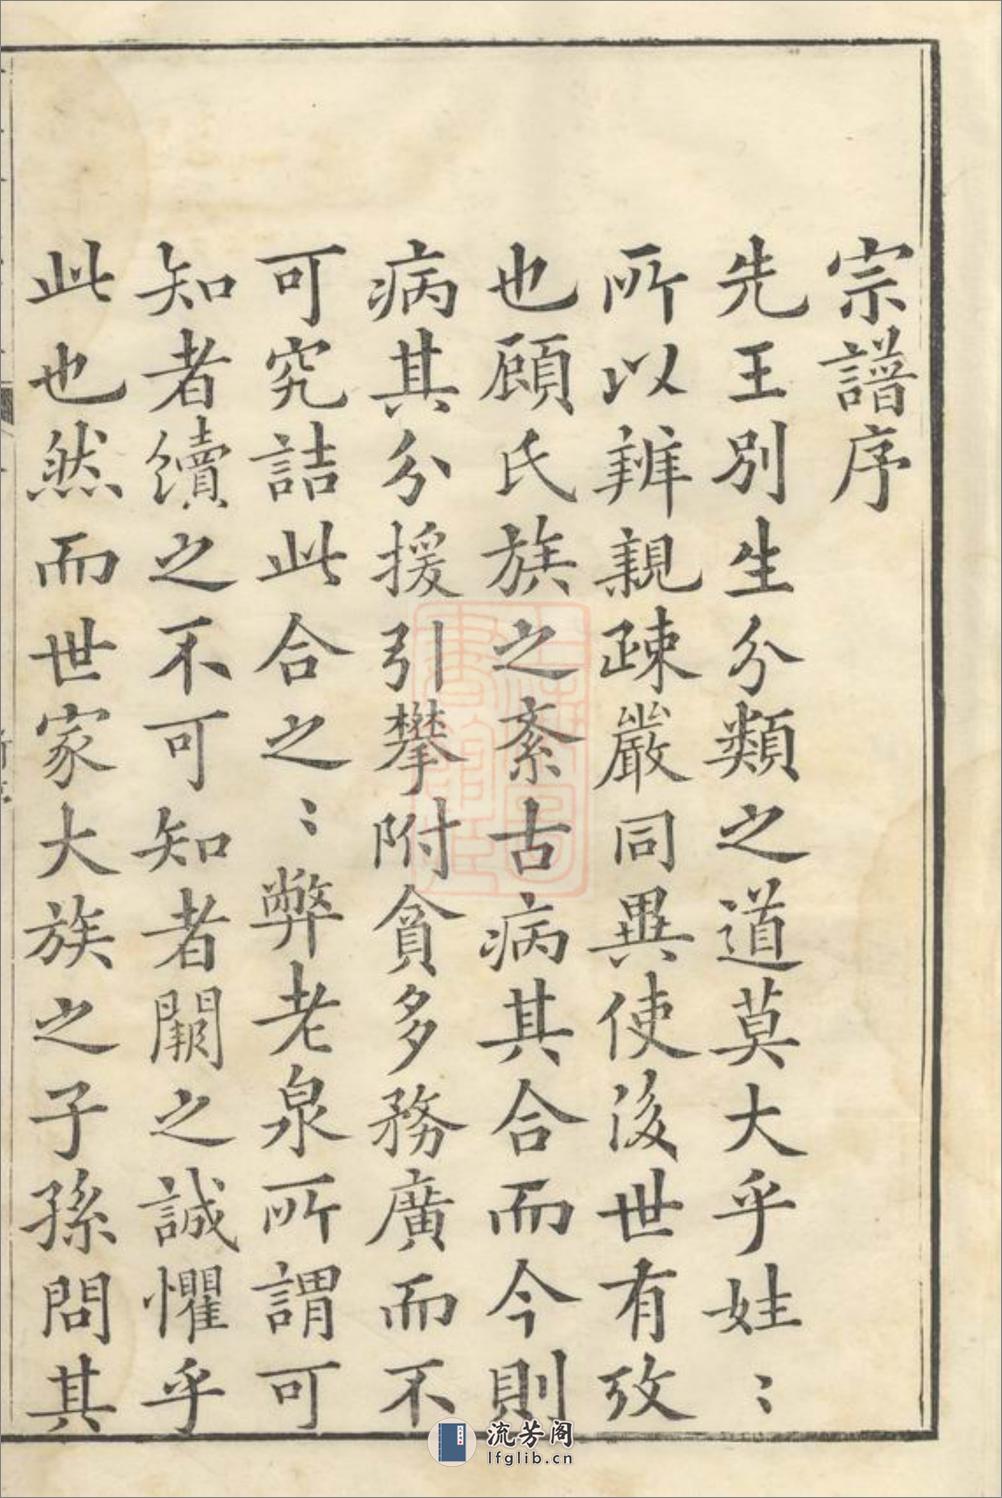 宗譜序
先王別生分類之道莫大乎姓〻
所以辨親疎嚴同異使後世有攷
也顧氏族之紊古病其合而今則
病其分援引攀附貪多務廣而不
可究詰此合之〻弊老泉所謂可
知者續之不可知者闕之誠懼乎
此也然而世家大族之子孫問其
流芳阁
lfglib.cn